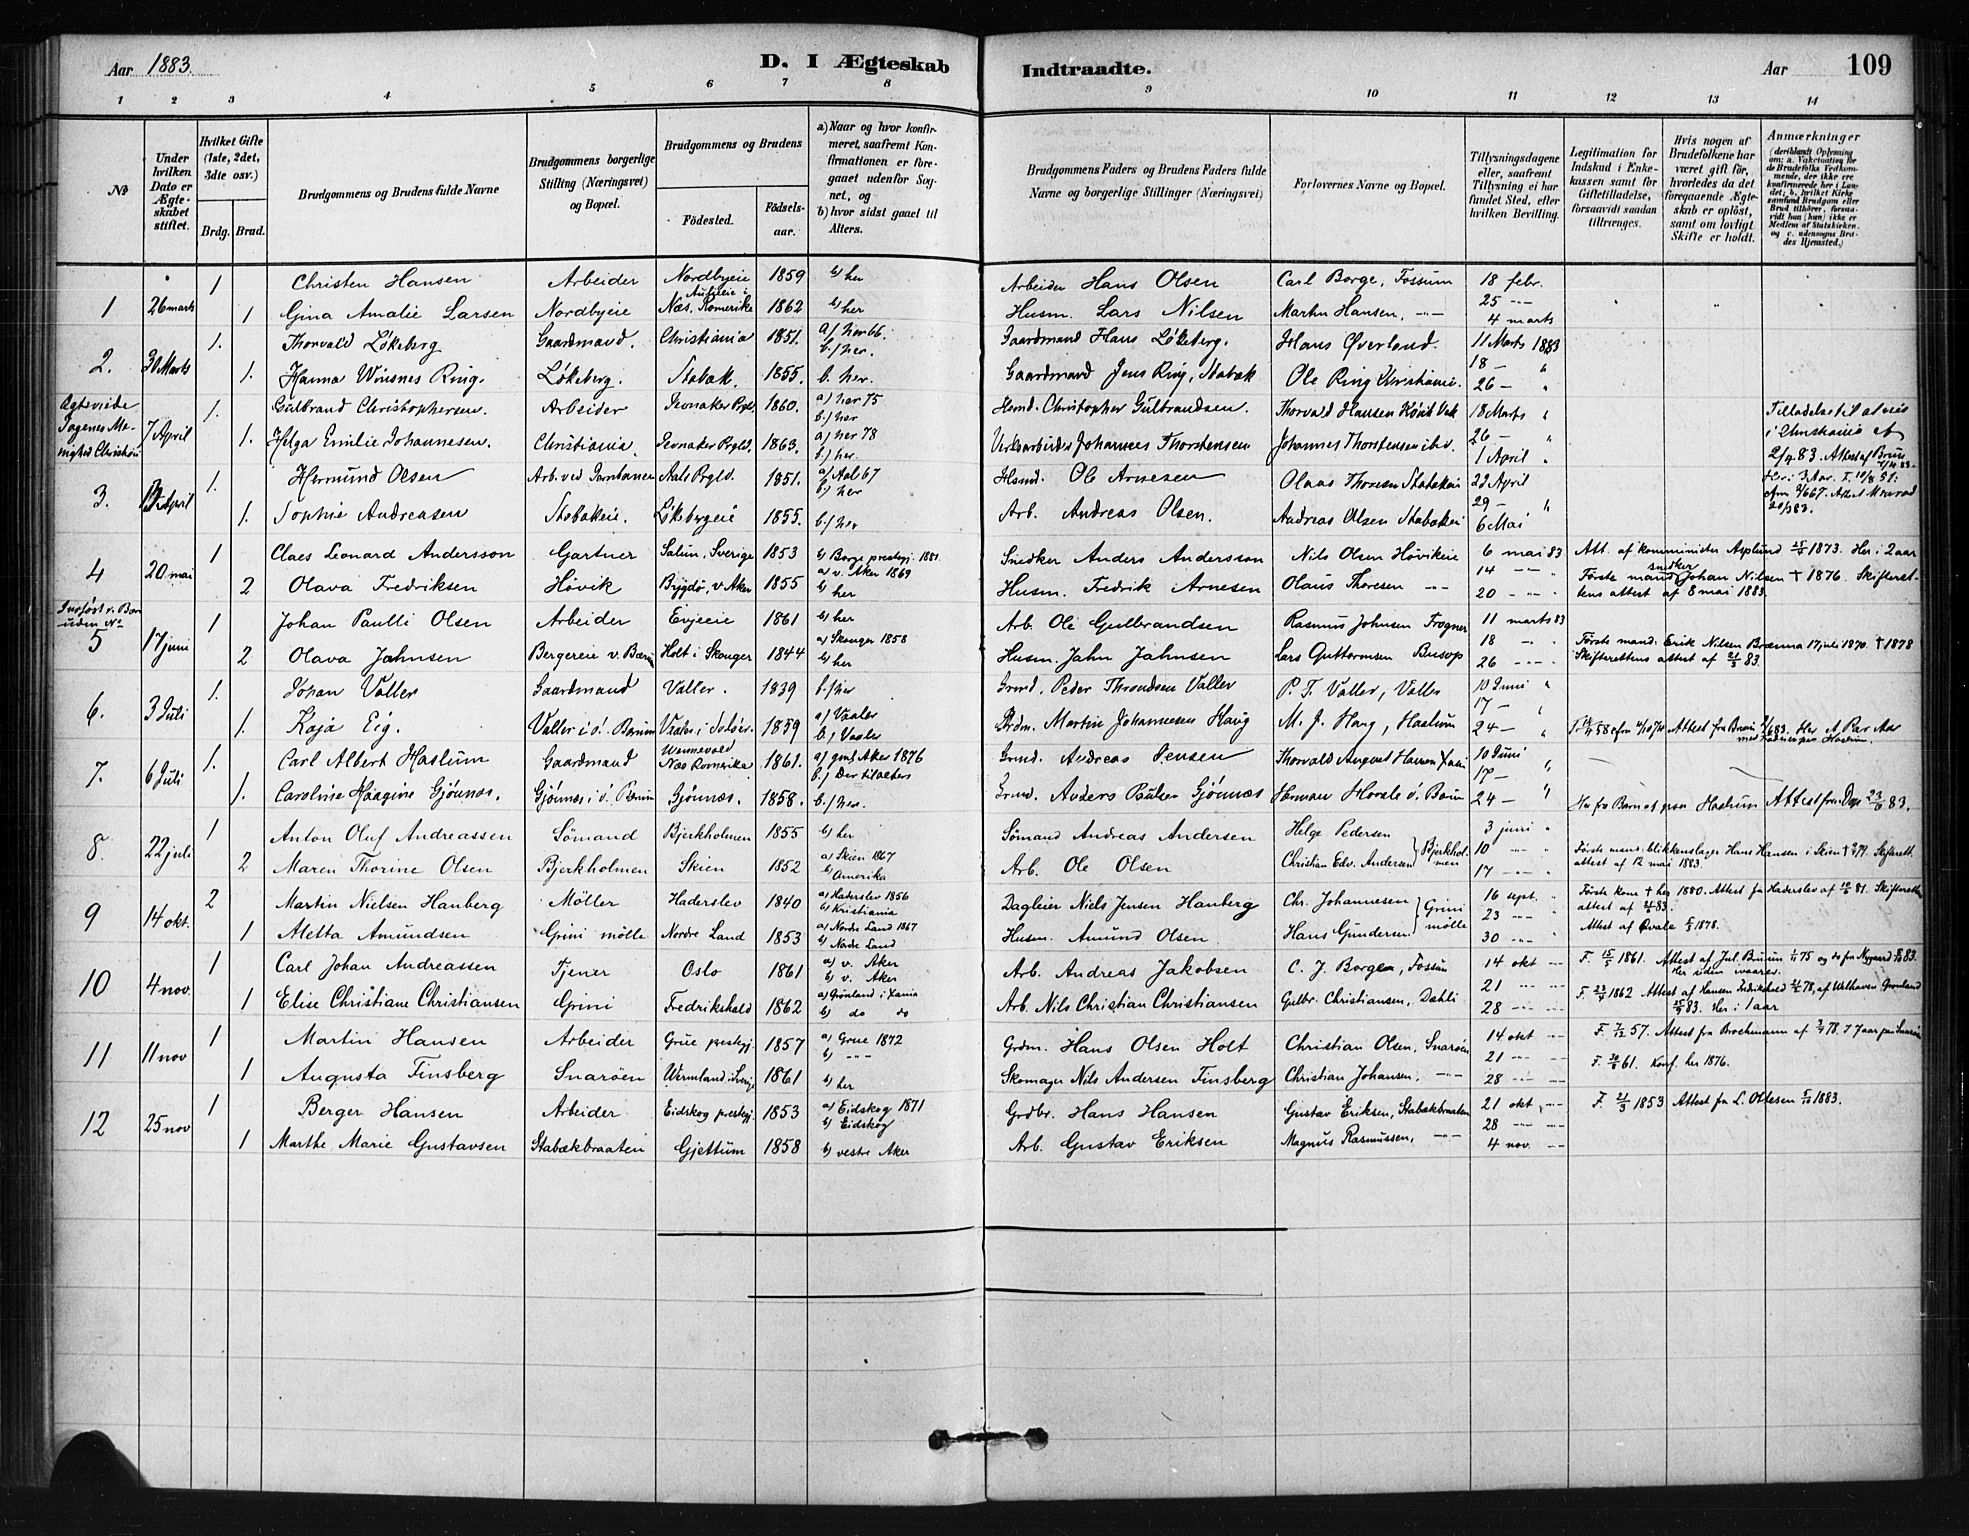 Aar 1883. D. I Ægteskab Indtraadte. Aar 109
1 2 3 4 5 6 7 8 9 10 11 12 13 14
No
Under hvilken Dato er Ægteskabet stiftet.
Hvilket Gifte (1ste, 2det, 3die osv.)
Brdg. Brud.
Brudgommens og Brudens fulde Navne
Brudgommens borgerlige Stilling (Næringsvei) og Bopæl.
Brudgommens og Brudens
Fødested. Fødselsaar.
a) Naar og hvor konfirmeret, saafremt Konfirmationen er foregaaet udenfor Sognet, og
b) hvor sidst gaaet til Alters.
Brudgommens Faders og Brudens Faders fulde Navne og borgerlige Stillinger (Næringsvei)
Forlovernes Navne og Bopæl.
Tillysningsdagene eller, saafremt Tillysning ei har fundet Sted, efter hvilken Bevilling.
Legitimation for Indskud i Enkekassen samt for Giftetilladelse, forsaavidt saadan tiltrænges.
Hvis nogen af Brudefolkene har været gift før, hvorledes da det foregaaende Ægteskab er opløst, samt om lovligt Skifte er holdt.
Anmærkninger
1 Christen Hansen Arbeider Nordbyeie 1859 b) her Arbeider Hans Olsen Carl Borge, Fossum 18 febr.
1 26 marts 1 Gina Amalie Larsen Nordbyeie Næs, Romerike 1862 b) her Husm. Lars Nilsen Martin Hansen, -"- 25 -"- 4 marts
1. Thorvald Løkeberg Gaardmand. Christiania 1851. b/ her. Gaardmand Hans Løkeberg. Hans Øverland. 11 Marts 1883
2. 30 Marts 1. Hanna Ring. Løkeberg. Stabæk. 1855. b. her. Gaardmand Jens Ring, Stabæk Ole Ring Christiania. 18 - " 26 - "
1. Gulbrand Christophersen. Arbeider 1860. a) her 75 b/ her Hsmd. Christopher Gulbrandsen. Thorvald Hansen 18 Marts "
7 April 1. Helga Emilie Johannesen. Christiania. 1863. a) her 78 b/ her. Johannes Thorstensen Johannes Thorstensen 26 - " 1 April "
1. Hermund Olsen Aals Prgld. 1851. a/ Aal 67 b) her Hsmd. Ole Arnesen Olaus Thoresen Stabækeie 22 April
3. April 1. Sophie Andreasen Stabækeie. Løkebergeie 1855. b./ her Arb. Andreas Olsen. Andreas Olsen Stabækeie 29 - " 6 Mai
1 Claes Leonard Andersson Gartner Salum, Sverige 1853 b) Borge prestegj. 1881. Snedker Anders Andersson Nils Olsen Høvikeie 6 mai 83 Att. af komminister Asplund 1873. Her i 2 aar
4 20 mai 2 Olava Fredriksen Høvik Bygdø, v. Aker 1855 a) v. Aker 1869 b) her Husm. Fredrik Arnesen Olaus Thoresen -"- 14 -"- 20 -"- Første mand snedker Johan Nilsen † 1876. Skifterettens attest af 8 mai 1883.
1 Johan Paulli Olsen Arbeider Evjeeie 1861 b) her Arb. Ole Gulbrandsen Rasmus Johnsen Frogner 11 marts 83
5 17 juni 2 Olava Jahnsen Bergereie v. Bærum Holt i Skauger 1844 a) Skauger 1858 b) her Husm. Jahn Jahnsen Lars Guttormsen Busop 18 -"- 26 -"- Første mand: Erik Nilsen Brænna 17 juli 1870. † 1878 Skifterettens attest af 21/3 83.
1. Johan Valler Gaardmand Valler. 1839 b./ her Grmd. Peder Throndsen Valler P. T. Valler, Valler 10 Juni "
6. 3 Juli 1. Kaja Eig. Valler i Ø. Bærum 1839 a) Vaaler b.) Vaaler Martin Johannesen Haug M. J. Haug, Haslum 17 - " 24 - "
1. Carl Albert Haslum Gaardmand Næs Romerike 1861. a) Aker 1876 Grmd. Andreas Jensen Thorvald August Hansen 10 Juni "
7. 6 Juli 1. Caroline Haagine Gjønnæs. Gjønnæs i Ø. Bærum Gjønnæs. 1858. b./ her. Grmd. Anders Paulsen Gjønnæs Herman Horsle Ø. Bærum 17 - 24 - " Her fra Barn af paa Haslum Attest fra 23/6 83.
1 Anton Oluf Andreassen Sømand Bjerkholmen 1855 b) her Sømand Andreas Andersen Helge Pedersen 3 juni "
8. 22 juli 2 Maren Thorine Olsen Bjerkholmen Skien 1852 a) Skien 1867 b) Amerika Arb. Ole Olsen Christian Edv. Andersen } Bjerkholmen 10 -"- 17 -"- Første mand: blikkenslager Hans Hansen i Skien Skifterett. attest af 12 mai 1883.
2 Martin Nielsen Hauberg Møller Haderslev 1840 a) Haderslev 1856 b) Kristiania Dagleier Niels Jensen Hauberg Chr. Johannesen 16 sept. " Første kone † her 1880. Attest fra Haderslev af 81. Skifterettens attest af 83.
9 14 okt. 1 Aletta Amundsen Grini mølle Nordre Land 1853 a) Nordre Land 1867 b) Nordre Land Husm. Amund Olsen Hans Gundersen } Grini mølle 23 -"- 30 -"- Attest af Qvale 1878.
1 Carl Johan Andreassen Tjener Oslo 1861 a) v. Aker b) v. Aker Arb. Andreas Jakobsen C. J. Borgen, Fossum 14 okt -"- F. 15/5 1861. Attest af Jul. Bruun
10 4 nov. 1 Elise Christiane Christiansen Grini Fredrikshald 1862 a) Grønland i Xania b) do do Arb. Nils Christian Christiansen Gulbr. Christiansen, Dæhli 21 -"- 28 -"- F. 1862 Attest af Hansen Fredrikshald 78, af Welhaven Grønland 83. Her i 1 aar
1 Martin Hansen Arbeider Grue prestegj. 1857 a) Grue 1872 b) -"- Grdm. Hans Olsen Holt Christian Olsen, Snarøen 14 okt -"- F. 7/12 57. Attest fra Brochmann
11 11 nov 1 Augusta Finsberg Snarøen Wermland i Sverige 1861 b) her Skomager Nils Andersen Finsberg Christian Johansen. -"- 21 -"- 28 -"- F. 61. Konf. her 1876.
1 Berger Hansen Arbeider Eidskog prestegj. 1853 a) Eidskog 1871 b) Eidskog Grdbr. Hans Hansen Gustav Eriksen, Stabækbraaten 21 okt -"- F. 21/3 1853 Attest fra L. Oftesen 5/10 1883.
12 25 nov 1 Marthe Marie Gustavsen Stabækbraaten Gjettum 1858 b) vestre Aker Arb. Gustav Eriksen Magnus Rasmussen, -"- 28 -"- 4 nov. -"-